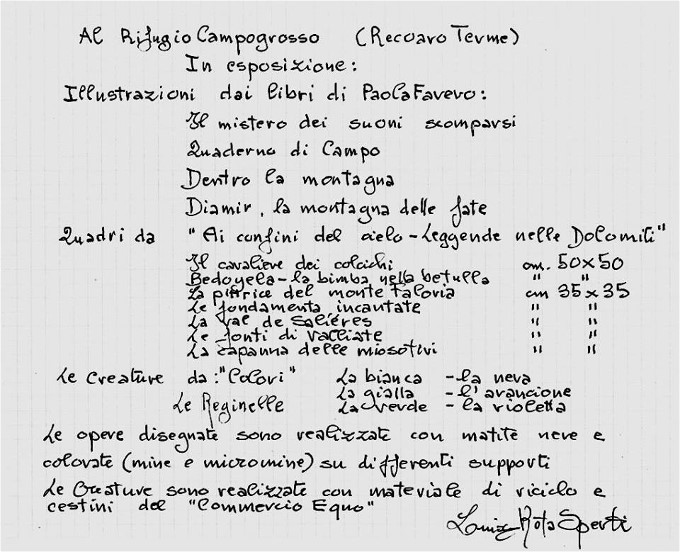 Al Rifugio Campogrosso (Recoaro Terme)
In esposizione:
Illustrazioni dai libri di Paola Favero:
Il mistero dei suoni scomparsi
Quaderno di Campo
Dentro la montagna
Diamir, la montagna delle fate
Quadri da "Ai confini del cielo - Leggende nelle Dolomiti"
Il cavaliere dei colchichi cm. 50x50
Bedoyela - la bimba nella betulla " "
La pittrice del monte Faloria cm 35x35
Le fondamenta incantate " "
La val de Salieres " "
Le fonti di Valliate " "
La capanna delle miosotivi " "
Le Creature da: "Colori" La bianca - la neva
Le Reginelle La gialla - l'arancione
La verde - la violetta
Le opere disegnate sono realizzate con matite nere e
colorate (mine e micromine) su differenti supporti
Le Creature sono realizzate con materiale di riciclo e
cestini del "Commercio Equo"
Luisa Rota Sperti